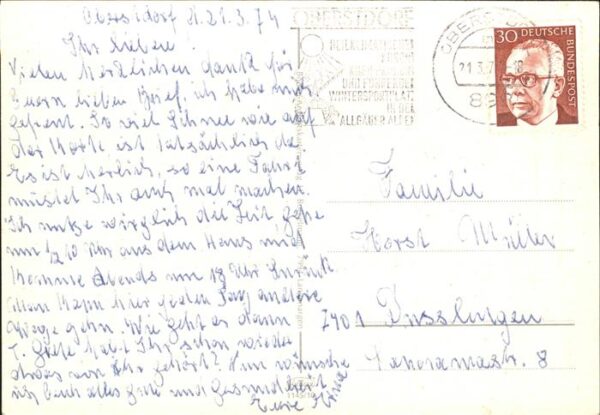 Oberstdorf d. 21.3.74
Ihr lieben!
Vielen herzlichen dank für
Euern lieben Brief, ich habe mich
gefreut. So viel Schnee wie auf
der Karte ist tatsächlich da
Es ist herlich, so eine Fahrt
müsst Ihr auch mal machen.
Ich nutze wirglich die Zeit gehe
um 1/2 10 Uhr aus dem Haus und
komme Abends um 18 Uhr zurück.
Man kann hier jeden Tag andere
Wege gehn. Wie geht es dann
T. Grete habt Ihr schon wieder
etwas von Ihr gehört? Nun wünsche
ich Euch alles gute und Gesundheit
Eure
OBERSTDORF
HEILKLIMATISCHER
WINTERSPORTPLATZ
IN DEN
ALLGÄUER ALPEN
OBERSTDORF
21.3.7
30 DEUTSCHE BUNDESPOST
Familie
Horst Müller
7401 Dusslingen
Panoramastr. 8